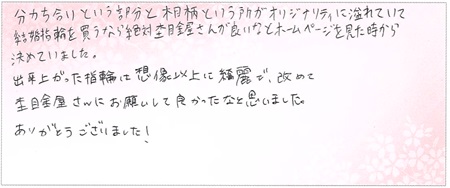 分かち合いという部分と相柄という所がオリジナリティに溢れていて
結婚指輪を買うなら絶対杢目金屋さんが良いなとホームページを見た時から
決めていました。
出来上がった指輪は想像以上に綺麗で、改めて
杢目金屋さんにお願いして良かったなと思いました。
ありがとうございました!